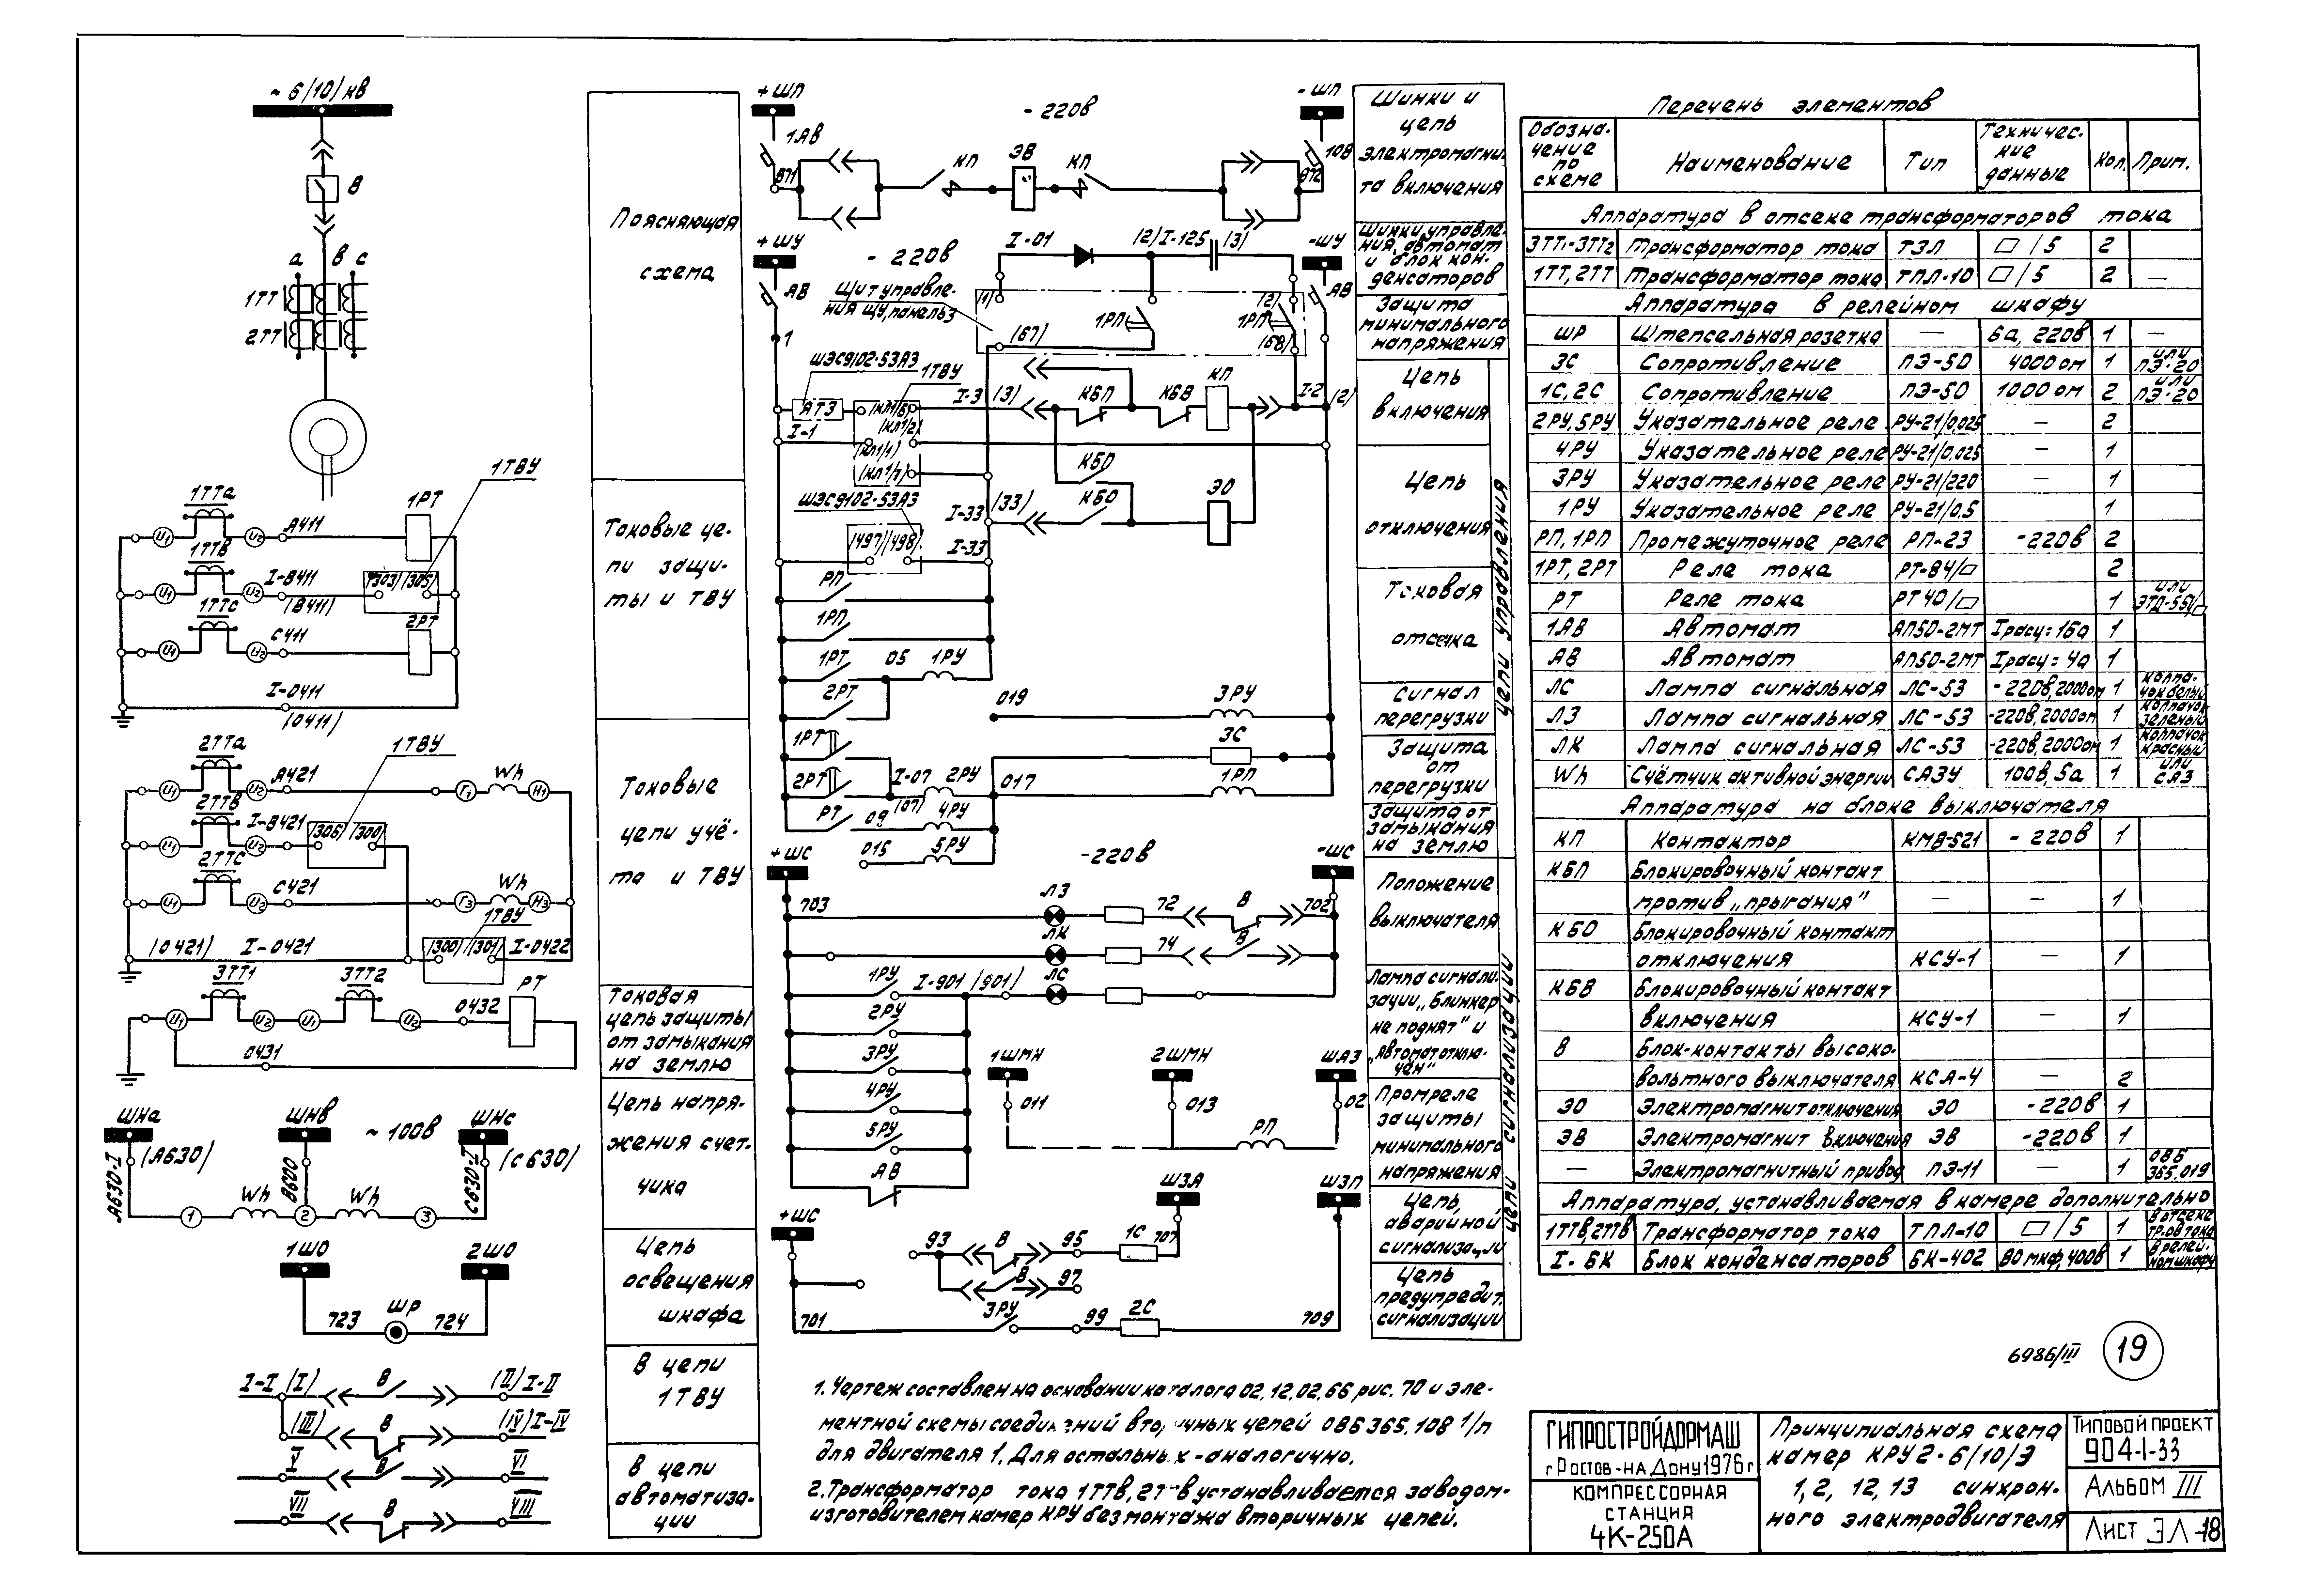 ~ 6/10/ кв
В
а в с
1ТТ
2ТТ
1ТВУ
1ТТа
А411
1РТ
U1 U2
1ТТв
I-В411
/303/ /305/
U1 U2
/В411/
1ТТс
С411
2РТ
U1 U2
I-0411
/0411/
2ТТа
А421
1ТВУ
Wh
U1 U2 Г1 Н1
2ТТв
I-В421
/306/ /300/
U2
2ТТс
С421
Wh
U1 U2 Г3 Н3
1ТВУ
/0421/ I-0421 /300/ /301/ I-0422
3ТТ1 3ТТ2 РТ
0432
U1 U2 U1 U2
0431
ШНа ШНв ШНс
~ 100В
А630-I /А630/ В600 С630-I /С630/
Wh Wh
1 2 3
1ШО 2ШО
723 ШР 724
I-I /I/ В /II/ I-II
/III/ В /IV/ I-IV
V В VI
VII В VIII
Поясняющая
схема
Токовые це-
пи защи-
ты и ТВУ
Токовые
цепи учё-
та и ТВУ
Токовая
цепь защиты
от замыкания
на землю
Цепь напря-
жения счет-
чика
Цепь
освещения
шкафа
В цепи
1ТВУ
В цепи
автоматиза-
ции
+ШП - 220в -ШП
1АВ 10В
871 КП ЭВ КП 872
+ШУ - 220в -ШУ
I-01 /2/ I-125 /3/
АВ АВ
Щит управле-
ния ЩУ, панель 3
/1/ 1РП 1РП /2/
/67/ /68/
1
ШЭС9102-53А3
1ТВУ
АТЗ /КЛ1/6/ I-3 /3/ КБП КБВ КП I-2 /2/
/КЛ1/2/
I-1
/КЛ1/1/
/КЛ1/7/
КБО
ШЭС9102-53А3
I-33 /33/ КБО ЭО
/497/ /498/ I-33
РП
1РП
1РТ 05 1РУ
2РТ
019 3РУ
1РТ 3С
2РТ I-07 2РУ 017 1РП
/07/
РТ 09 4РУ
015 5РУ
+ШС -220в -ШС
703 ЛЗ 72 В 702
ЛК 74 В
1РУ I-901 /901/ ЛС
2РУ
3РУ
4РУ
5РУ
АВ
1ШМН 2ШМН ШАЗ
011 013 02
РП
ШЗА ШЗП
+ШС
93 В 95 1С 707
В 97
701 3РУ 99 2С 709
Шинки и
цепь
электромагни-
та включения
Шинки управле-
ния, автомат
и блок кон-
денсаторов
Защита
минимального
напряжения
Цепь
включения
Цепь
отключения
Токовая
отсечка
Сигнал
перегрузки
Защита
от
перегрузки
Защита от
замыкания
на землю
Положение
выключателя
Лампа сигнали-
зации „Блинкер
не поднят" и
„Автомат отклю-
чен"
Промреле
защиты
минимального
напряжения
Цепь
аварийной
сигнализации
Цепь
предупредит.
сигнализации
Цепи управления
Цепи сигнализации
Перечень элементов
Обозна-чение по схеме Наименование Тип Техничес-кие данные Кол. Прим.
Аппаратура в отсеке трансформаторов тока
3ТТ1-3ТТ2 Трансформатор тока ТЗЛ □/5 2
1ТТ, 2ТТ Трансформатор тока ТПЛ-10 □/5 2 —
Аппаратура в релейном шкафу
ШР Штепсельная розетка — 6а, 220в 1 —
3С Сопротивление ПЭ-50 4000 ом 1 или ПЭ-20
1С, 2С Сопротивление ПЭ-50 1000 ом 2 или ПЭ-20
2РУ, 5РУ Указательное реле РУ-21/0,025 — 2
4РУ Указательное реле РУ-21/0,025 — 1
3РУ Указательное реле РУ-21/220 — 1
1РУ Указательное реле РУ-21/0,5 1
РП, 1РП Промежуточное реле РП-23 -220в 2
1РТ, 2РТ Реле тока РТ-84/□ 2
РТ Реле тока РТ40/□ 1 или ЭТД-551/□
1АВ Автомат АП50-2МТ Iрасц=16а 1
АВ Автомат АП50-2МТ Iрасц=4а 1
ЛС Лампа сигнальная ЛС-53 -220в, 2000ом 1 колпа-чок белый
ЛЗ Лампа сигнальная ЛС-53 -220в, 2000ом 1 колпачок зеленый
ЛК Лампа сигнальная ЛС-53 -220в, 2000ом 1 колпачок красный
Wh Счётчик активной энергии САЗУ 100в, 5а 1 или САЗ
Аппаратура на блоке выключателя
КП Контактор КМВ-521 - 220в 1
КБП Блокировочный контакт
против „прыгания" — — 1
КБО Блокировочный контакт
отключения КСУ-1 — 1
КБВ Блокировочный контакт
включения КСУ-1 — 1
В Блок-контакты высоко-
вольтного выключателя КСА-4 — 2
ЭО Электромагнит отключения ЭО -220в 1
ЭВ Электромагнит включения ЭВ -220в 1
— Электромагнитный привод ПЭ-11 — 1 ОВБ 365.019
Аппаратура, устанавливаемая в камере дополнительно
1ТТв, 2ТТв Трансформатор тока ТПЛ-10 □/5 1 в отсеке тр.ов тока
I-БК Блок конденсаторов БК-402 80 мкф, 400в 1 в релей-ном шкафу
1. Чертеж составлен на основании каталога 02.12.02.66 рис. 70 и эле-
ментной схемы соединений вторичных цепей ОВБ 365.108 1/п
для двигателя 1. Для остальных - аналогично.
2. Трансформатор тока 1ТТв, 2ТТв устанавливается заводом-
изготовителем камер КРУ без монтажа вторичных цепей.
6986/III 19
ГИПРОСТРОЙДОРМАШ
г Ростов-на-Дону 1976г
КОМПРЕССОРНАЯ
СТАНЦИЯ
4К-250А
Принципиальная схема
камер КРУ2-6/10/Э
1, 2, 12, 13 синхрон-
ного электродвигателя
ТИПОВОЙ ПРОЕКТ
904-1-33
Альбом III
Лист ЭЛ-18